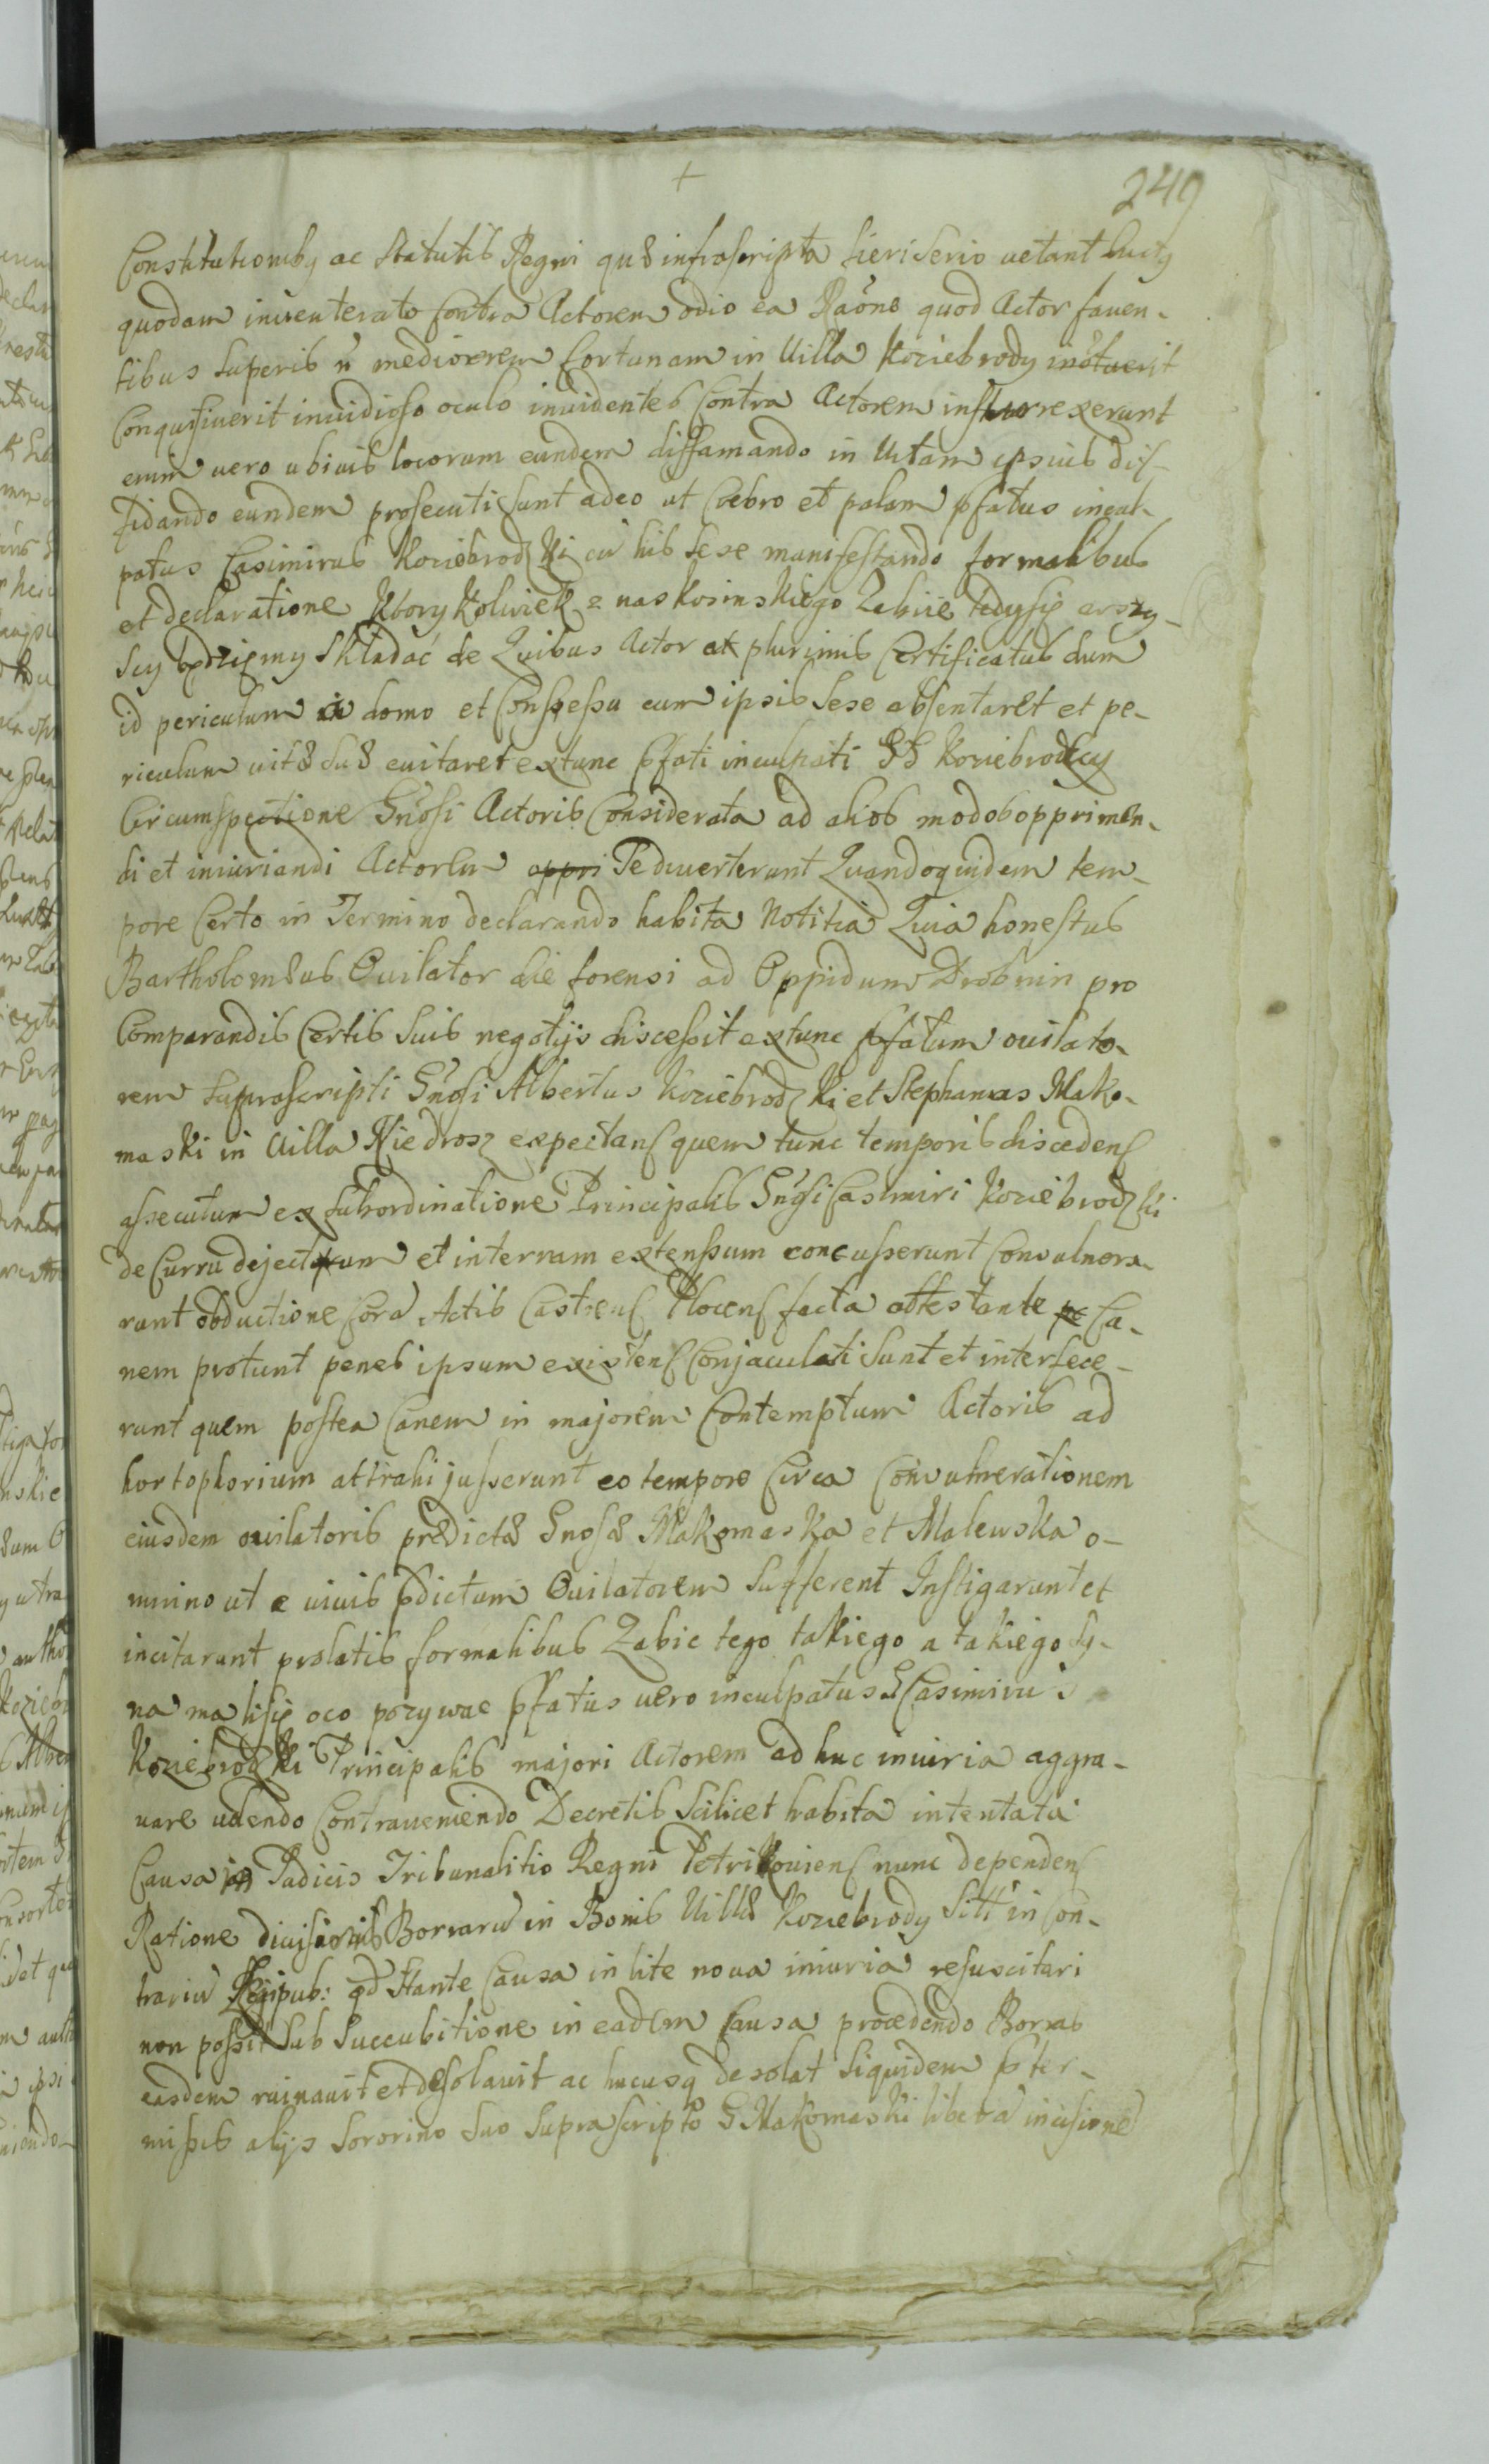 +
249
Constitutionibq ac Statutis Regni quæ infrascripta fieri serio vetant ductq
quodam inveterato contra Actorem odio ea Raõne quod Actor faven-
tibus Superis n mediocrem fortunam in Villa Koziebrody
Conquisiverit invidioso oculo invidentes Contra Actorem insurrexerunt
enim vero ubivis locorum eundem diffamando in Vitam ipsius dif-
fidando eundem prosecuti sunt adeo ut Crebro et palam pfatus incul-
patus Casimirus Koziebrodzki cũ his sese manifestando formalibus
et declaratione Ktory Kolwiek z nas Kosinskiego Zabiie tedy się wszy-
scy będziemy składać de Quibus Actor ex plurimis Certificatus dum
id periculum a domo et Conspessu eum ipsis sese absentaret et pe-
riculum vitæ suæ evitaret extunc pfati inculpati GG Koziebrodscy
Circumspectione Gnosi Actoris Considerata ad alios modos opprimen-
di et iniuriandi Actorem appri Se diverterunt Quandoquidem tem-
pore Certo in Termino declarando habita Notitia Quia honestus
Bartholomæus Ovilator die forensi ad Oppidum Drobnin pro
Comparandis Certis suis negotijs discessit extunc pfatum ovilato-
rem suprascripti Gnosi Albertus Koziebrodzki et Stephanus Mako-
maski in Villa Niedroz expectans quem tunc temporis discedens
assecutum ex subordinatione Principalis Gnosi Casimiri Koziebrodzki
de Curru dejectum et in terram extenssum concusserunt Convulnera-
runt obductione Cora Actis Castrens Plocens facta attestante Ca-
nem protunc penes ipsum existens Conjaculati sunt et interfece-
runt quem postea Canem in majorem Contemptum Actoris ad
hortophorium attrahi jusserunt eo tempore Circa Convulnerationem
eiusdem ovilatoris prædictæ Gnosæ Makomaska et Malewska o-
mnino ut e vivis pdictum Ovilatorem sufferent Instigarunt et
incitarunt prolatis formalibus Zabic tego takiego a takiego sy-
na ma li się oco pozywac pfatus vero inculpatus G Casimirus
Koziebrodzki Principalis majori Actorem ad huc iniuria aggra-
vare volendo Contraveniendo Decretis Scilicet habita intentata
Causa in Judicio Tribunalitio Regni Petrikoviens nunc dependens
Ratione divisionis Borraru in Bonis Villæ Koziebrody Sitt in Con-
trariũ Legi pub: qd Stante Causa in lite nova iniuria resuscitari
non possit Sub Succubitione in eadem Causa procedendo Borras
easdem ruinavit et desolavit ac hucusq desolat Siquidem pter-
missis alijs Sororino Suo Suprascripto G Makomaski libera incisione